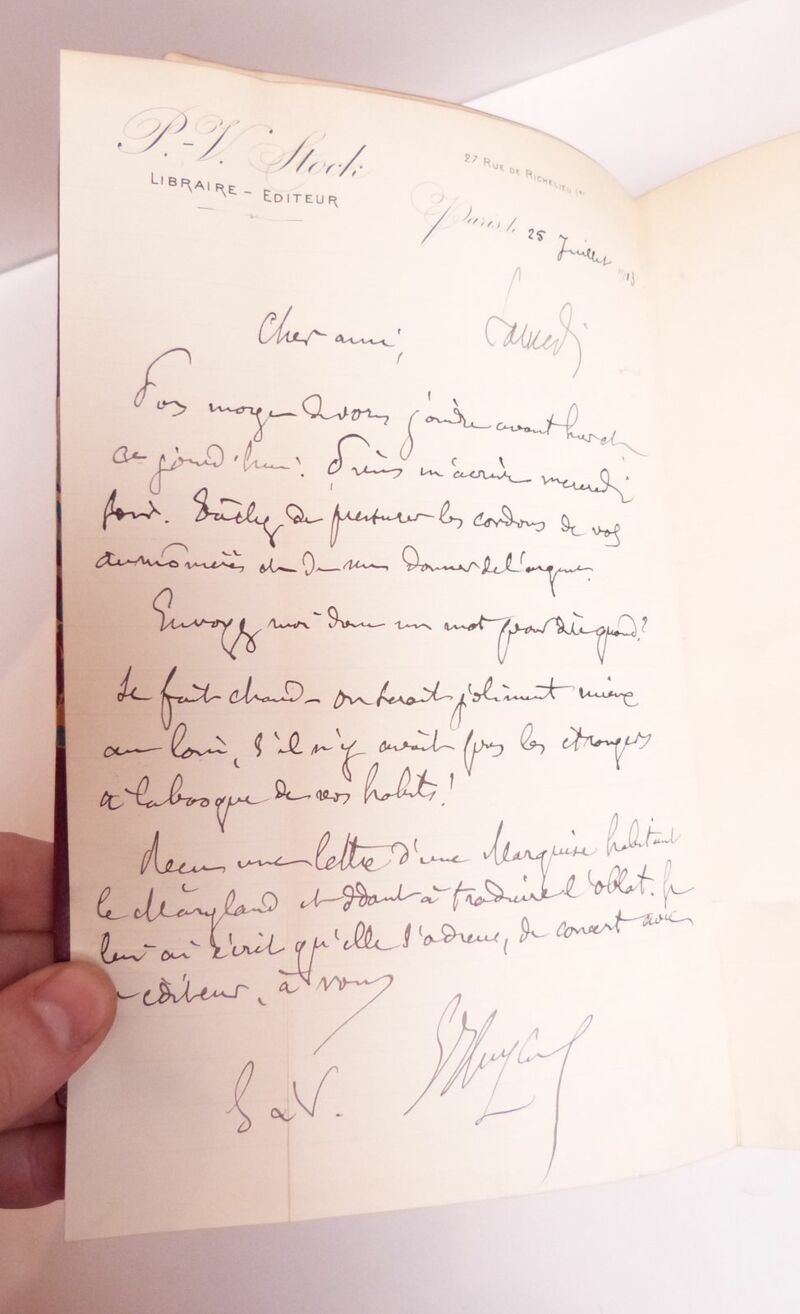 P.-V. Stock
LIBRAIRE - EDITEUR
27 RUE DE RICHELIEU
Paris, le 25 Juillet
Samedi
Cher ami,
Pas moyen de vous joindre avant hier et
ce jourd'hui.
soir. Tâchez de pressurer les cordons de vos
aumônières et de me donner de l'argent.
Envoyez moi donc un mot pour dire quand?
Il fait chaud - on serait joliment mieux
au loin, s'il n'y avait pas les étrangers
à la basque de vos habits!
Reçu une lettre d'une Marquise habitant
le Maryland et ddant à traduire l'oblat. Je
lui ai écrit qu'elle s'adresse, de concert avec
éditeur, à vous
à V.
Huysmans